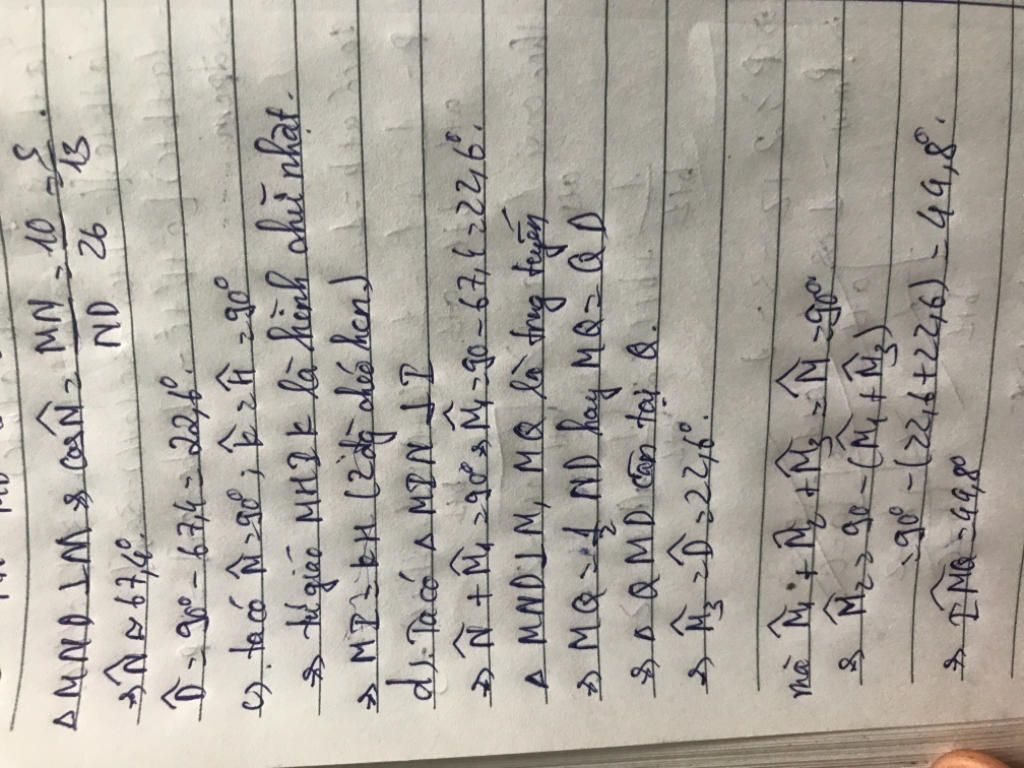 Δ MND ⊥ M ⇒ cos N̂ = MN/ND = 10/26 = 5/13
⇒ N̂ ≈ 67,4°.
D̂ = 90° - 67,4 = 22,6°.
c). ta có N̂ = 90°; K̂ = Ĥ = 90°
⇒ tứ giác MHIK là hình chữ nhật.
⇒ MI = KH (2 đg chéo hcn)
d). Ta có Δ MIN ⊥ I
⇒ N̂ + M̂₁ = 90° ⇒ M̂₁ = 90 - 67,4 = 22,6°.
Δ MND ⊥ M, MQ là trung tuyến
⇒ MQ = 1/2 ND hay MQ = QD
⇒ Δ QMD cân tại Q.
⇒ M̂₃ = D̂ = 22,6°.
mà M̂₁ + M̂₂ + M̂₃ = M̂ = 90°
⇒ M̂₂ = 90 - (M̂₁ + M̂₃)
= 90° - (22,6 + 22,6) = 44,8°.
⇒ IM̂Q = 44,8°